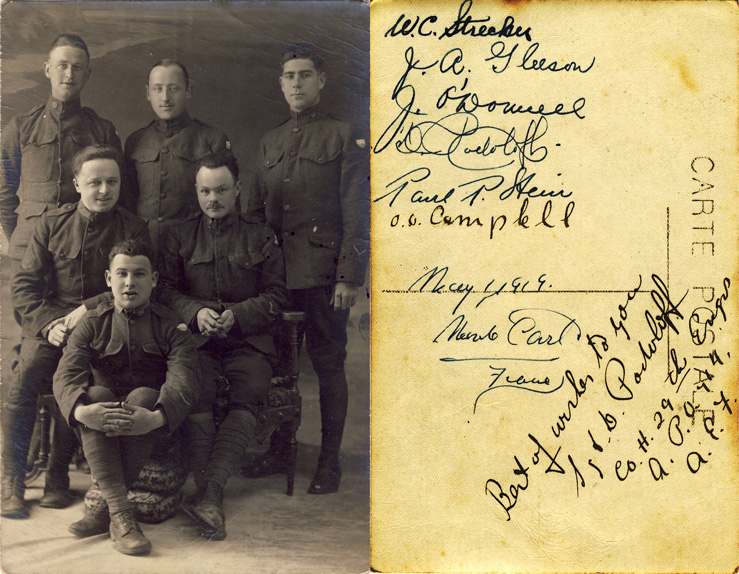 W.C. Strecker
J. A. Gleeson
J. O'Donnell
D. Podoloff.
Paul P. Stein
O.O. Campbell
May 1, 1919.
France
CARTE POSTALE
Best of wishes to you
D. Podoloff
Co. H. 29th Engrs
A. P. O. 714.
A. E. F.